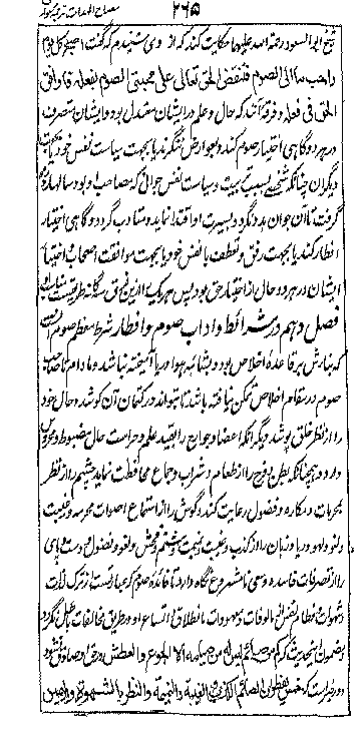 ۲۶۵
شیخ ابو السعود رحمة الله علیه حکایت کند که از وی شنیدم که گفت اصبح کل یوم
واحب ما الی الصوم فینقض الحق تعالی علی محبتی الصوم بفعله فاوافق
الحق فی فعله و فرقه آنند که حال و علم در ایشان معتدل بود و ایشان متصرف
در هر دو گاهی اختیار صوم کنند و بعوارض ننگرند یا بجهت سیاست نفس خود یا بجهت
دیگران چنانکه شخصی بسبب تربیت و سیاست نفس جوانی که مصاحب او بود سالها روزه
گرفت تا آن جوان بدو نگرد و بسیرت او اقتدا نماید و متادب گردد و گاهی اختیار
افطار کنند یا بجهت رفق و تعطف با نفس خود یا بجهت موافقت اصحاب اختیار
ایشان در هر دو حال از اختیار حق بود پس هر یک را ازین فرق سه گانه طریقیست
فصل دهم در شرائط و آداب صوم و افطار شرط معظم صوم
که بنایش بر قاعدهٔ اخلاص بود و بشائبه هوا و ریا آمیخته نباشد و مادام تا صاحب
صوم در مقام اخلاص تمکن نیافته باشد تا تواند در کتمان آن کوشد و حال خود
از نظر خلق پوشد دیگر آنکه اعضا و جوارح را بقید علم و حراست حال مضبوط و محروس
دارد و همچنانکه بطن و فرج را از طعام و شراب و جماع محافظت نماید چشم را از نظر
بمحرمات و مکاره و فضول رعایت کند و گوش را از استماع اصوات محرمه و غیبت
و لغو و لهو و ریا و زبان را از کذب و غیبت و نمیمت و شتم و فحش و لغو و فضول و دست و پای
را از تصرفات فاسده و سعی نامشروع نگاه دارد تا فائده صوم که عبارتست از ترک لذات
و شهوات و فطام نفس از مالوفات و معهودات با انطلاق و اتساع او در طریق مخالفات باطل نگردد
و مضمون این حدیث که کم من صائم لیس له من صیامه الا الجوع و العطش
در خبر است که خمس یفطرن الصائم الکذب و الغیبة و النمیمة و النظر بالشهوة و الیمین